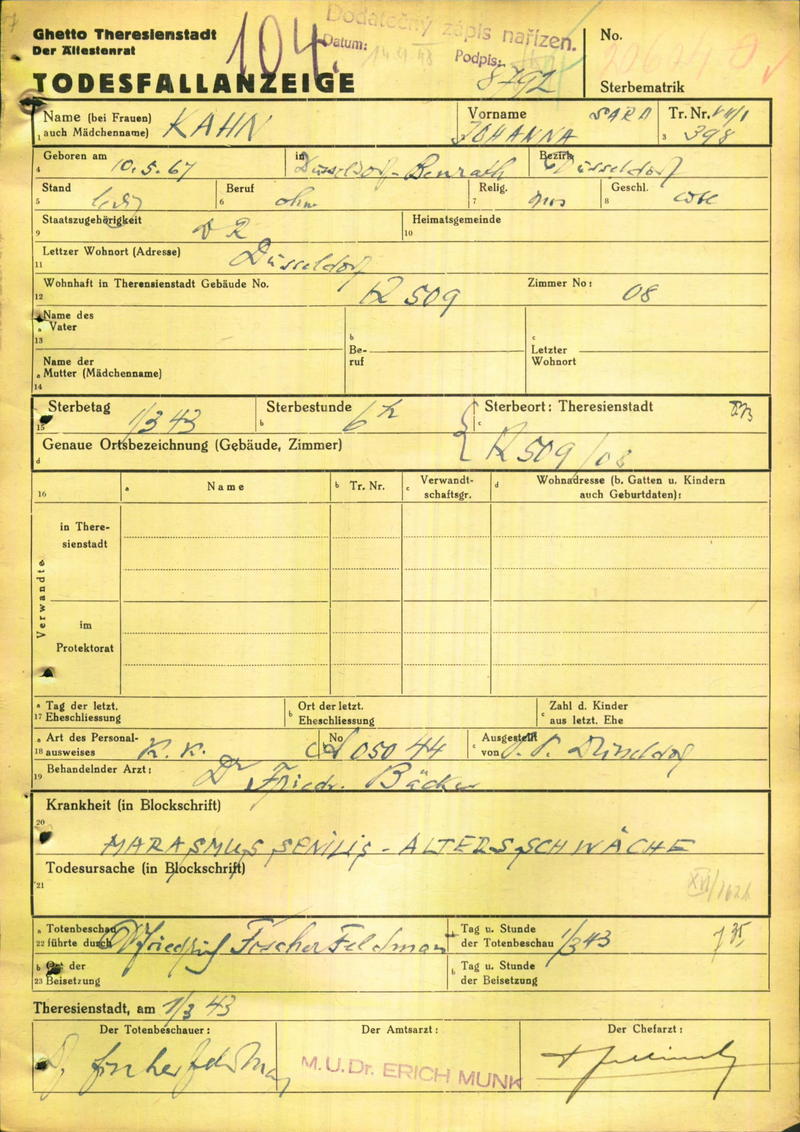 Dodatečný zápis nařízen.
Datum:
Podpis:
104.
8792
Ghetto Theresienstadt
Der Ältestenrat
TODESFALLANZEIGE
No.
Sterbematrik
Name (bei Frauen) auch Mädchenname) KAHN
Vorname SARA JOHANNA
Tr. Nr. VII/1 398
4 Geboren am 10.5.67 in Düsseldorf-Benrath Bezirk Düsseldorf
5 Stand ledig 6 Beruf ohne 7 Relig. mos 8 Geschl.
9 Staatszugehörigkeit D R 10 Heimatsgemeinde
11 Lettzer Wohnort (Adresse) Düsseldorf
12 Wohnhaft in Therensienstadt Gebäude No. Q 509 Zimmer No: 08
13 a Name des Vater b Beruf c Letzter Wohnort
14 a Name der Mutter (Mädchenname)
15 Sterbetag 1/3 43 b Sterbestunde 6 h c Sterbeort: Theresienstadt
d Genaue Ortsbezeichnung (Gebäude, Zimmer) Q 509/08
16 a Name b Tr. Nr. c Verwandtschaftsgr. d Wohnadresse (b. Gatten u. Kindern auch Geburtdaten):
Verwandte
in Theresienstadt
im Protektorat
17 a Tag der letzt. Eheschliessung b Ort der letzt. Eheschliessung c Zahl d. Kinder aus letzt. Ehe
18 a Art des Personalausweises K. K. b No 05044 c Ausgestellt von P. P. Düsseldorf
19 Behandelnder Arzt: Dr Friedr. Bäcker
20 Krankheit (in Blockschrift)
MARASMUS SENILIS - ALTERSSCHWÄCHE
21 Todesursache (in Blockschrift)
22 a Totenbeschau führte durch Dr Friedrich Föscher Feldmann Tag u. Stunde der Totenbeschau 1/3 43 7 35
23 b Ort der Beisetzung b Tag u. Stunde der Beisetzung
Theresienstadt, am 1/3 43
Der Totenbeschauer: Der Amtsarzt: Der Chefarzt:
M.U.Dr. ERICH MUNK